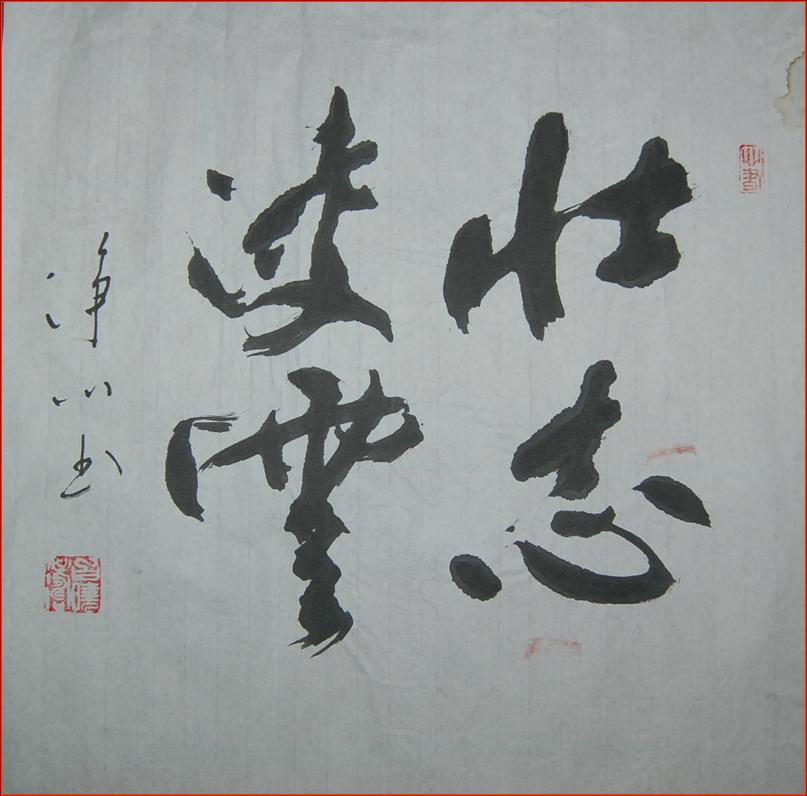 壮志
凌雲
净心书